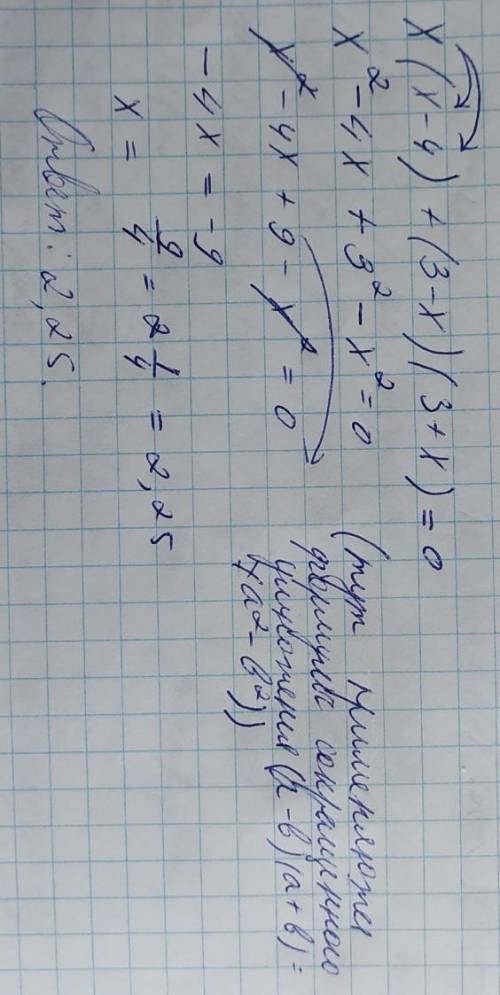 x(x-4) + (3-x)(3+x) = 0
x² - 4x + 3² - x² = 0
x² - 4x + 9 - x² = 0
-4x = -9
x = 9/4 = 2 1/4 = 2,25
Ответ: 2,25.
(тут применяются
формулы сокращенного
умножения (a-b)(a+b) =
a² - b²))